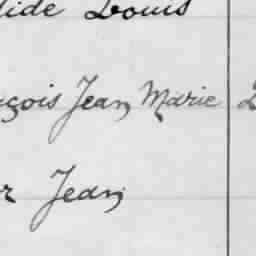 lide Louis
çois Jean Marie
r Jean